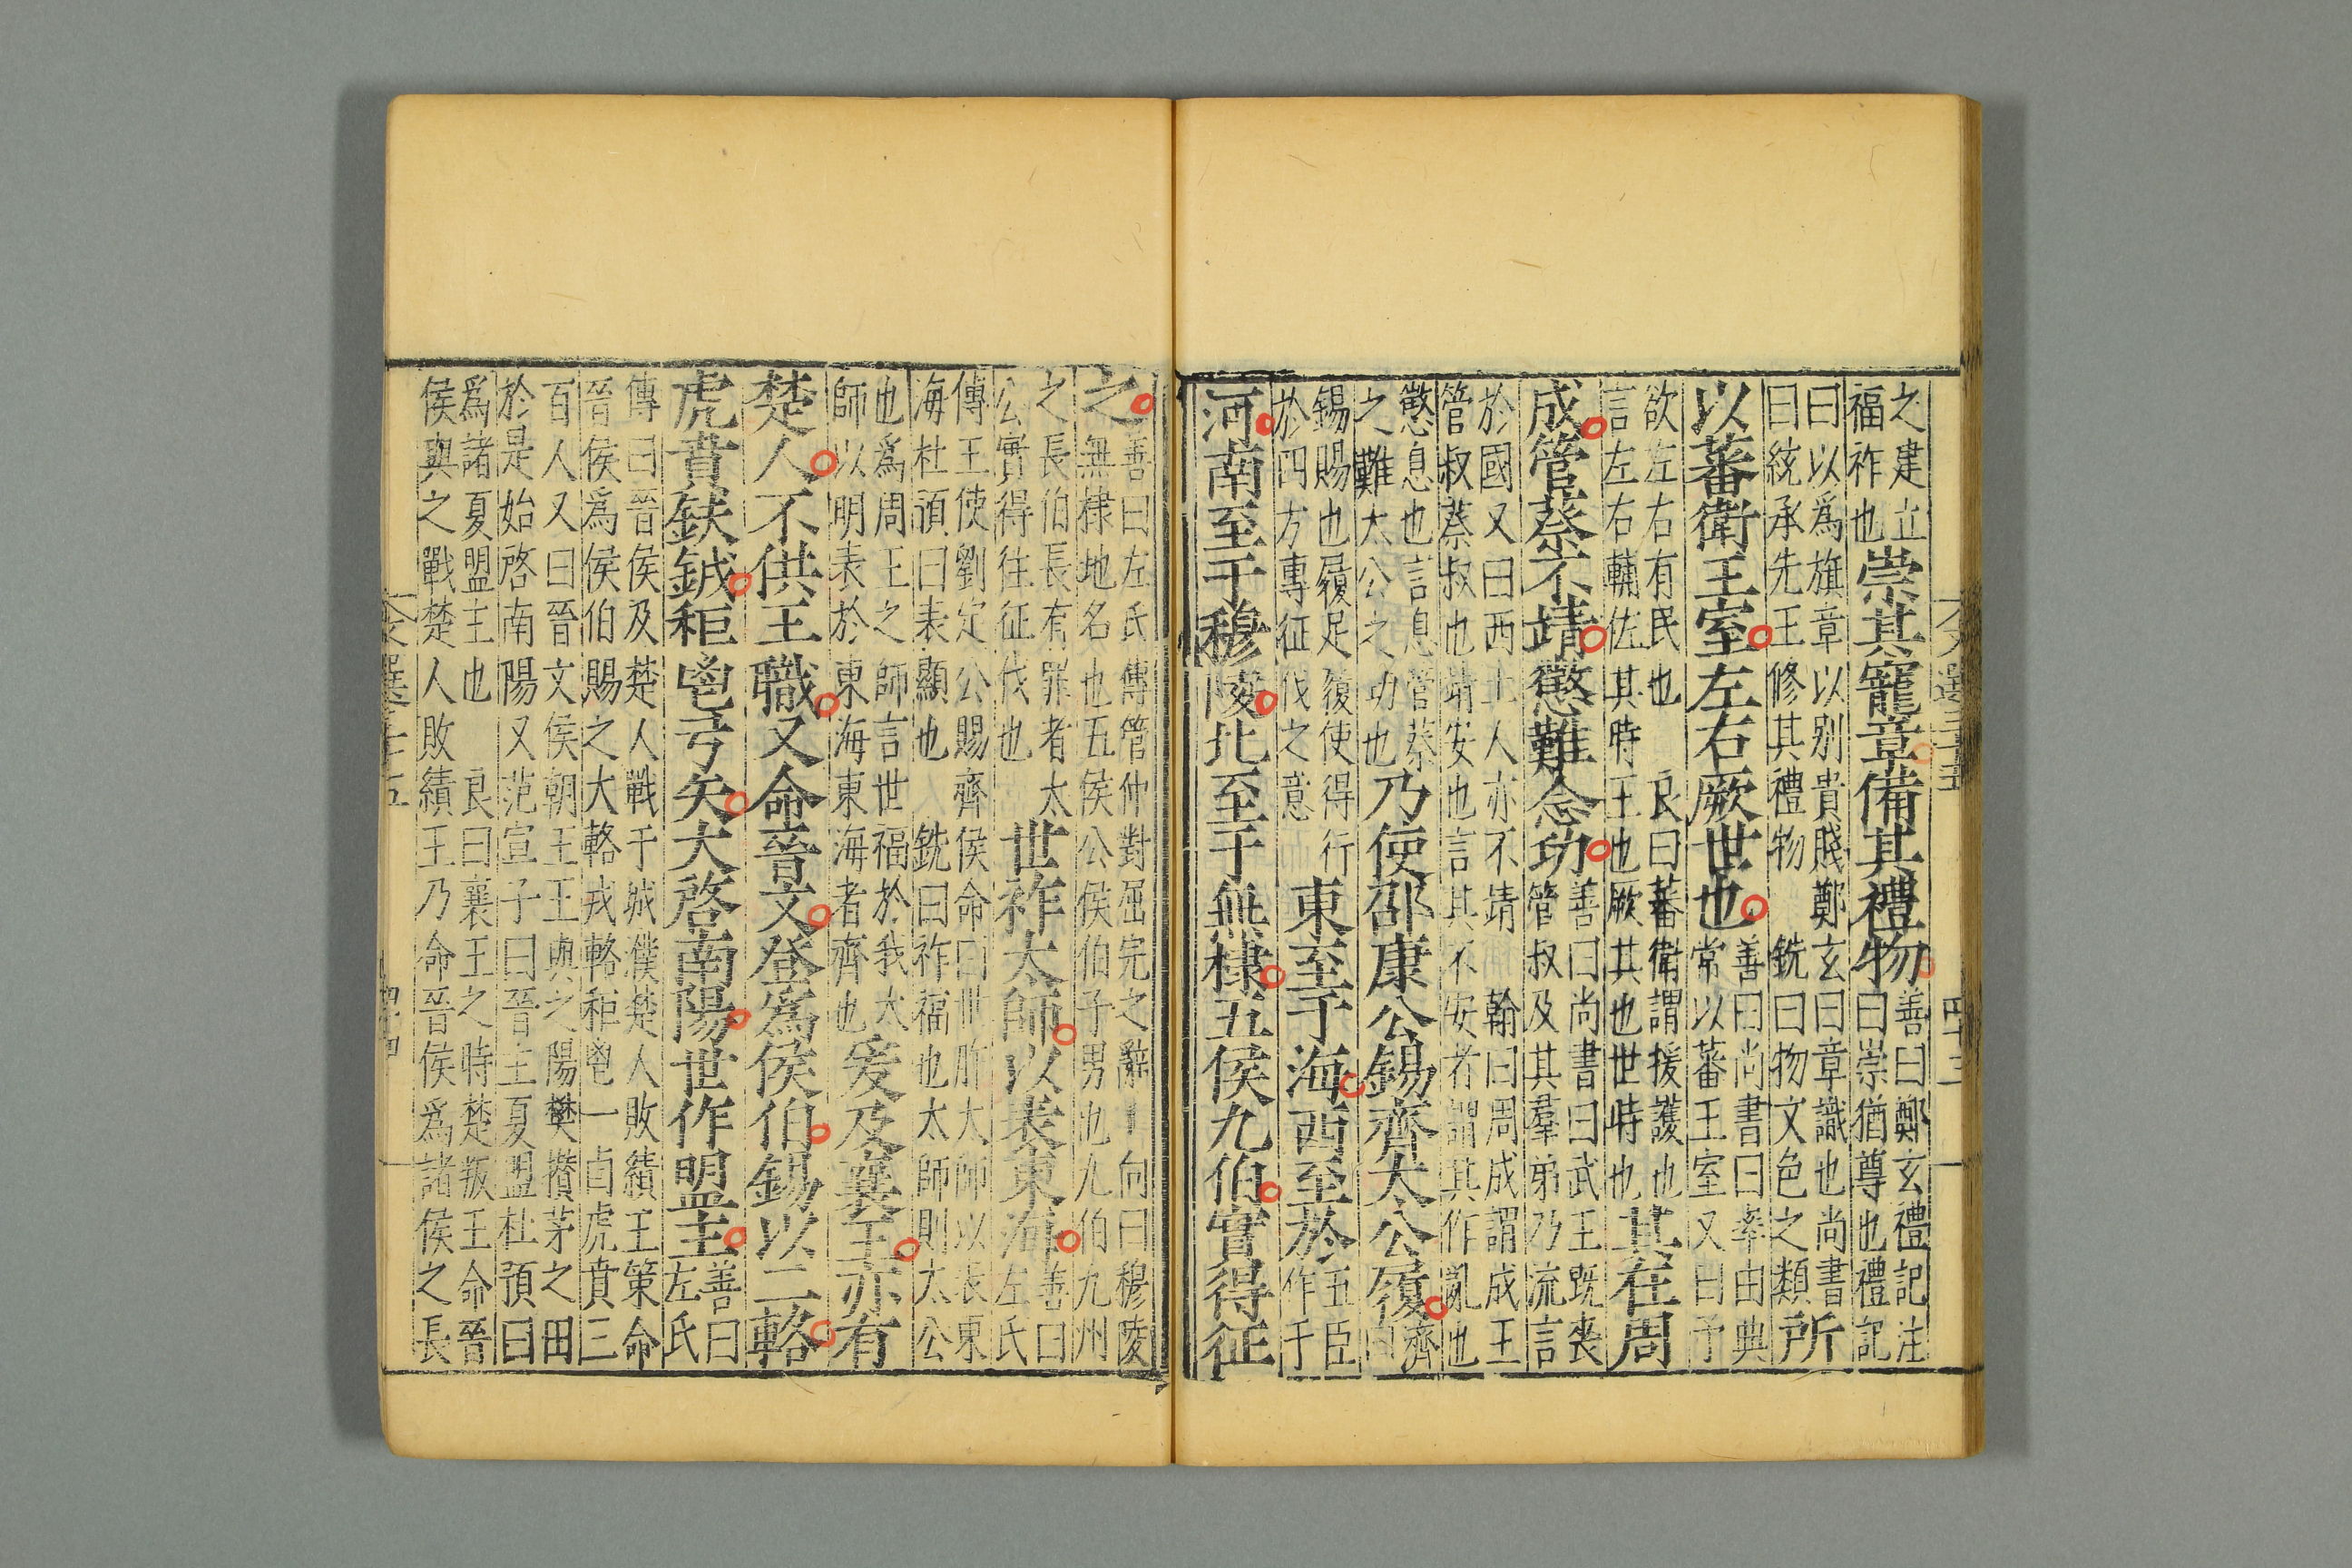 之建立
福祚也
崇其寵章備其禮物
善曰鄭玄禮記注
曰崇猶尊也禮記
曰以爲旗章以别貴賤鄭玄曰章識也尚書
曰統承先王修其禮物 銑曰物文色之類
所
以蕃衛王室左右厥世也
善曰尚書曰率由典
常以蕃王室又曰予
欲左右有民也 良曰蕃衛謂援護也
言左右輔佐其時王也厥其也世時也
其在周
成管蔡不靖懲難念功
善曰尚書曰武王既喪
管叔及其羣弟乃流言
於國又曰西土人亦不靖 翰曰周成謂成王
管叔蔡叔也靖安也言其不安者謂其作亂也
懲息也言息管蔡
之難太公之功也
乃使邵康公錫齊太公履
齊
曰
錫賜也履足履使得行
於四方專征伐之意
東至于海西至於
五臣
作于
河南至于穆陵北至于無棣五侯九伯實得征
之
善曰左氏傳管仲對屈完之辭 向曰穆陵
無棣地名也五侯公侯伯子男也九伯九州
之長伯長有罪者太
公實得往征伐也
世祚太師以表東海
善曰
左氏
傳王使劉定公賜齊侯命曰世胙大師以表東
海杜預曰表顯也 銑曰祚福也太師則太公
也爲周王之師言世福於我太
師以明表於東海東海者齊也
爰及襄王亦有
楚人不供王職又命晉文登爲侯伯錫以二輅
虎賁鈇鉞秬鬯弓矢大啓南陽世作盟主
善曰
左氏
傳曰晉侯及楚人戰于城濮楚人敗績王策命
晉侯爲侯伯賜之大輅戎輅秬鬯一卣虎賁三
百人又曰晉文侯朝王王與之陽樊攢茅之田
於是始啓南陽又范宣子曰晉主夏盟杜預曰
爲諸夏盟主也 良曰襄王之時楚叛王命晉
侯與之戰楚人敗績王乃命晉侯爲諸侯之長